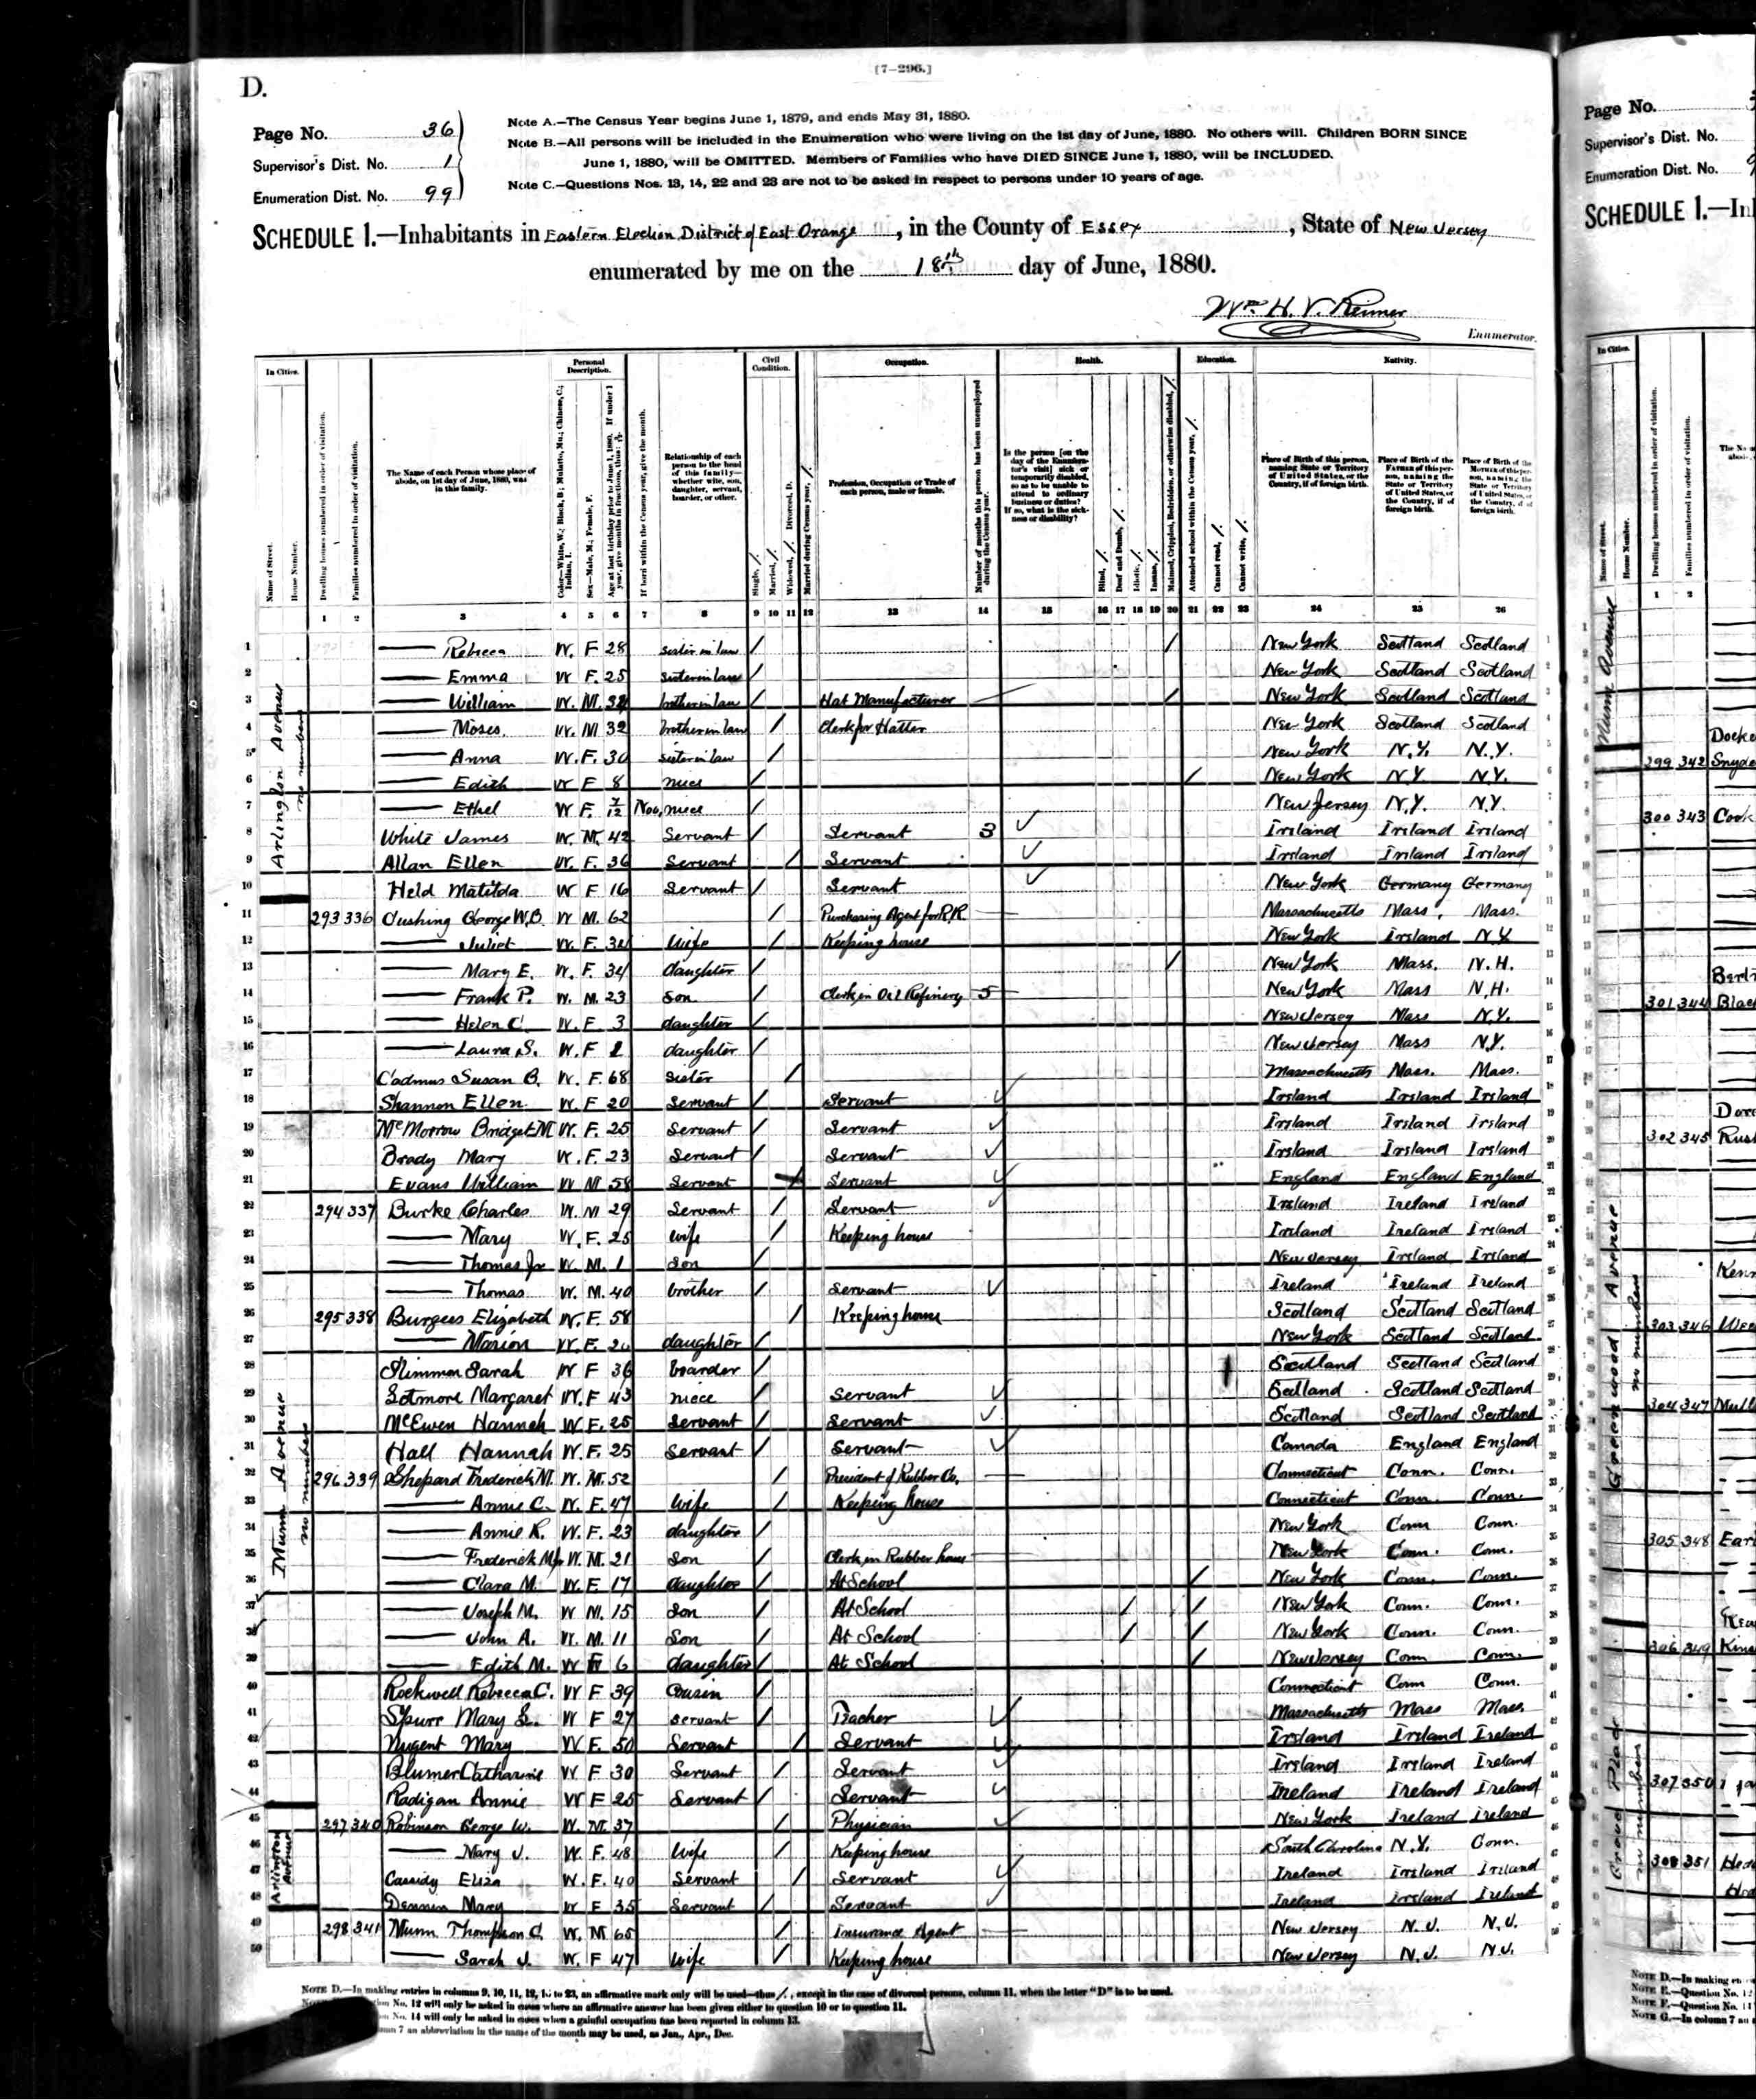 [7-296.]
D.
Page No. 36
Supervisor's Dist. No. 1
Enumeration Dist. No. 99
Note A.—The Census Year begins June 1, 1879, and ends May 31, 1880.
Note B.—All persons will be included in the Enumeration who were living on the 1st day of June, 1880. No others will. Children BORN SINCE
June 1, 1880, will be OMITTED. Members of Families who have DIED SINCE June 1, 1880, will be INCLUDED.
Note C.—Questions Nos. 13, 14, 22 and 23 are not to be asked in respect to persons under 10 years of age.
SCHEDULE 1.—Inhabitants in Eastern Election District of East Orange, in the County of Essex, State of New Jersey
enumerated by me on the 18th day of June, 1880.
Wm H. V. Reimer
Enumerator.
In Cities. Personal Description. Civil Condition. Occupation. Health. Education. Nativity.
Name of Street. House Number. Dwelling houses numbered in order of visitation. Families numbered in order of visitation.
The Name of each Person whose place of abode, on 1st day of June, 1880, was in this family.
Relationship of each person to the head of this family—whether wife, son, daughter, servant, boarder, or other.
Profession, Occupation or Trade of each person, male or female.
1 2 3 4 5 6 7 8 9 10 11 12 13 14 15 16 17 18 19 20 21 22 23 24 25 26
Arlington Avenue
no numbers
1 —— Rebecca W. F 28 sister in law / / New York Scotland Scotland
2 —— Emma W F. 25 sister in law / New York Scotland Scotland
3 —— William W. M. brother in law / Hat Manufacturer / New York Scotland Scotland
4 —— Moses. W. M 32 brother in law / Clerk for Hatter New York Scotland Scotland
5 —— Anna W. F. 30 sister in law / New York N.Y. N.Y.
6 —— Edith W F 8 niece / / New York N.Y. N.Y.
7 —— Ethel W F. 7/12 Nov. niece / New Jersey N.Y. N.Y.
8 White James W. M. 42 Servant / Servant 3 Ireland Ireland Ireland
9 Allan Ellen W. F. 36 Servant / Servant Ireland Ireland Ireland
10 Held Matilda W F 16 Servant / Servant New York Germany Germany
11 293 336 Cushing George W.B. W M. 62 / Purchasing Agent for R.R. Massachusetts Mass. Mass.
12 —— Juliet W. F. wife / Keeping house New York Ireland N.Y.
13 —— Mary E. W. F. 34 daughter / / New York Mass. N.H.
14 —— Frank P. W. M. 23 Son / Clerk in Oil Refinery 5 New York Mass N.H.
15 —— Helen C. W. F 3 daughter / New Jersey Mass N.Y.
16 —— Laura S. W. F daughter / New Jersey Mass N.Y.
17 Cadmus Susan B. W. F. 68 Sister / Massachusetts Mass. Mass.
18 Shannon Ellen W. F 20 Servant / Servant Ireland Ireland Ireland
19 McMorrow Bridget M W. F. 25 Servant / Servant Ireland Ireland Ireland
20 Brady Mary W. F. 23 Servant / Servant Ireland Ireland Ireland
21 Evans William W M 58 Servant Servant England England England
22 294 337 Burke Charles W. M 29 Servant / Servant Ireland Ireland Ireland
23 —— Mary W. F. 25 wife / Keeping house Ireland Ireland Ireland
24 —— Thomas Jr W. M. 1 Son / New Jersey Ireland Ireland
25 —— Thomas W. M. 40 brother / Servant Ireland Ireland Ireland
26 295 338 Burgess Elizabeth W. F. 58 / Keeping house Scotland Scotland Scotland
27 —— Marion W. F. daughter / New York Scotland Scotland
Munn Avenue
no numbers
28 Sarah W F 36 boarder / Scotland Scotland Scotland
29 Margaret W. F 43 niece / Servant Scotland Scotland Scotland
30 McEwen Hannah W F. 25 Servant / Servant Scotland Scotland Scotland
31 Hall Hannah W. F. 25 Servant / Servant Canada England England
32 296 339 Shepard Frederick M. W. M. 52 / President of Rubber Co. Connecticut Conn. Conn.
33 —— Annie C. W. F. 47 Wife / Keeping house Connecticut Conn. Conn.
34 —— Annie R. W. F. 23 daughter / New York Conn Conn.
35 —— Frederick M Jr W. M. 21 Son / Clerk in Rubber house New York Conn. Conn.
36 —— Clara M. W. F. 17 daughter / At School / New York Conn. Conn.
37 —— Joseph M. W M. 15 Son / At School / / New York Conn. Conn.
38 —— John A. W. M. 11 Son / At School / / New York Conn. Conn.
39 —— Edith M. W F 6 daughter / At School / New Jersey Conn Conn.
40 Rockwell Rebecca C. W F 39 Cousin / Connecticut Conn Conn.
41 Spurr Mary L. W F 27 servant / Teacher Massachusetts Mass Mass.
42 Nugent Mary W F. 50 Servant / Servant Ireland Ireland Ireland
43 Blumer Catharine W F 30 Servant / Servant Ireland Ireland Ireland
44 Radigan Annie W F 25 Servant / Servant Ireland Ireland Ireland
Arlington Avenue
45 297 340 Robinson George W. W. M. 37 / Physician New York Ireland Ireland
46 —— Mary J. W. F. 48 Wife / Keeping house South Carolina N.Y. Conn.
47 Cassidy Eliza W. F. 40 Servant / Servant Ireland Ireland Ireland
48 Mary W F 35 Servant / Servant Ireland Ireland Ireland
49 298 341 Munn Thompson C. W. M 65 / Insurance Agent New Jersey N.J. N.J.
50 —— Sarah J. W. F 47 Wife / Keeping house New Jersey N.J. N.J.
Note D.—In making entries in columns 9, 10, 11, 12, to 23, an affirmative mark only will be used—thus /, except in the case of divorced persons, column 11, when the letter "D" is to be used.
No. 12 will only be asked in cases where an affirmative answer has been given either to question 10 or to question 11.
No. 14 will only be asked in cases when a gainful occupation has been reported in column 13.
7 an abbreviation in the name of the month may be used, as Jan., Apr., Dec.
Page No.
Supervisor's Dist. No.
Enumeration Dist. No.
SCHEDULE 1.—
In Cities.
Munn Avenue
299 342 Snyde
300 343 Cook
301 344
302 345
Greenwood Avenue
no numbers
303 346
304 347
305 348
306 349
Grove Place
no numbers
307 350
308 351
Note D.—In making
Note E.—Question No. 12
Note F.—Question No.
Note G.—In column 7 an